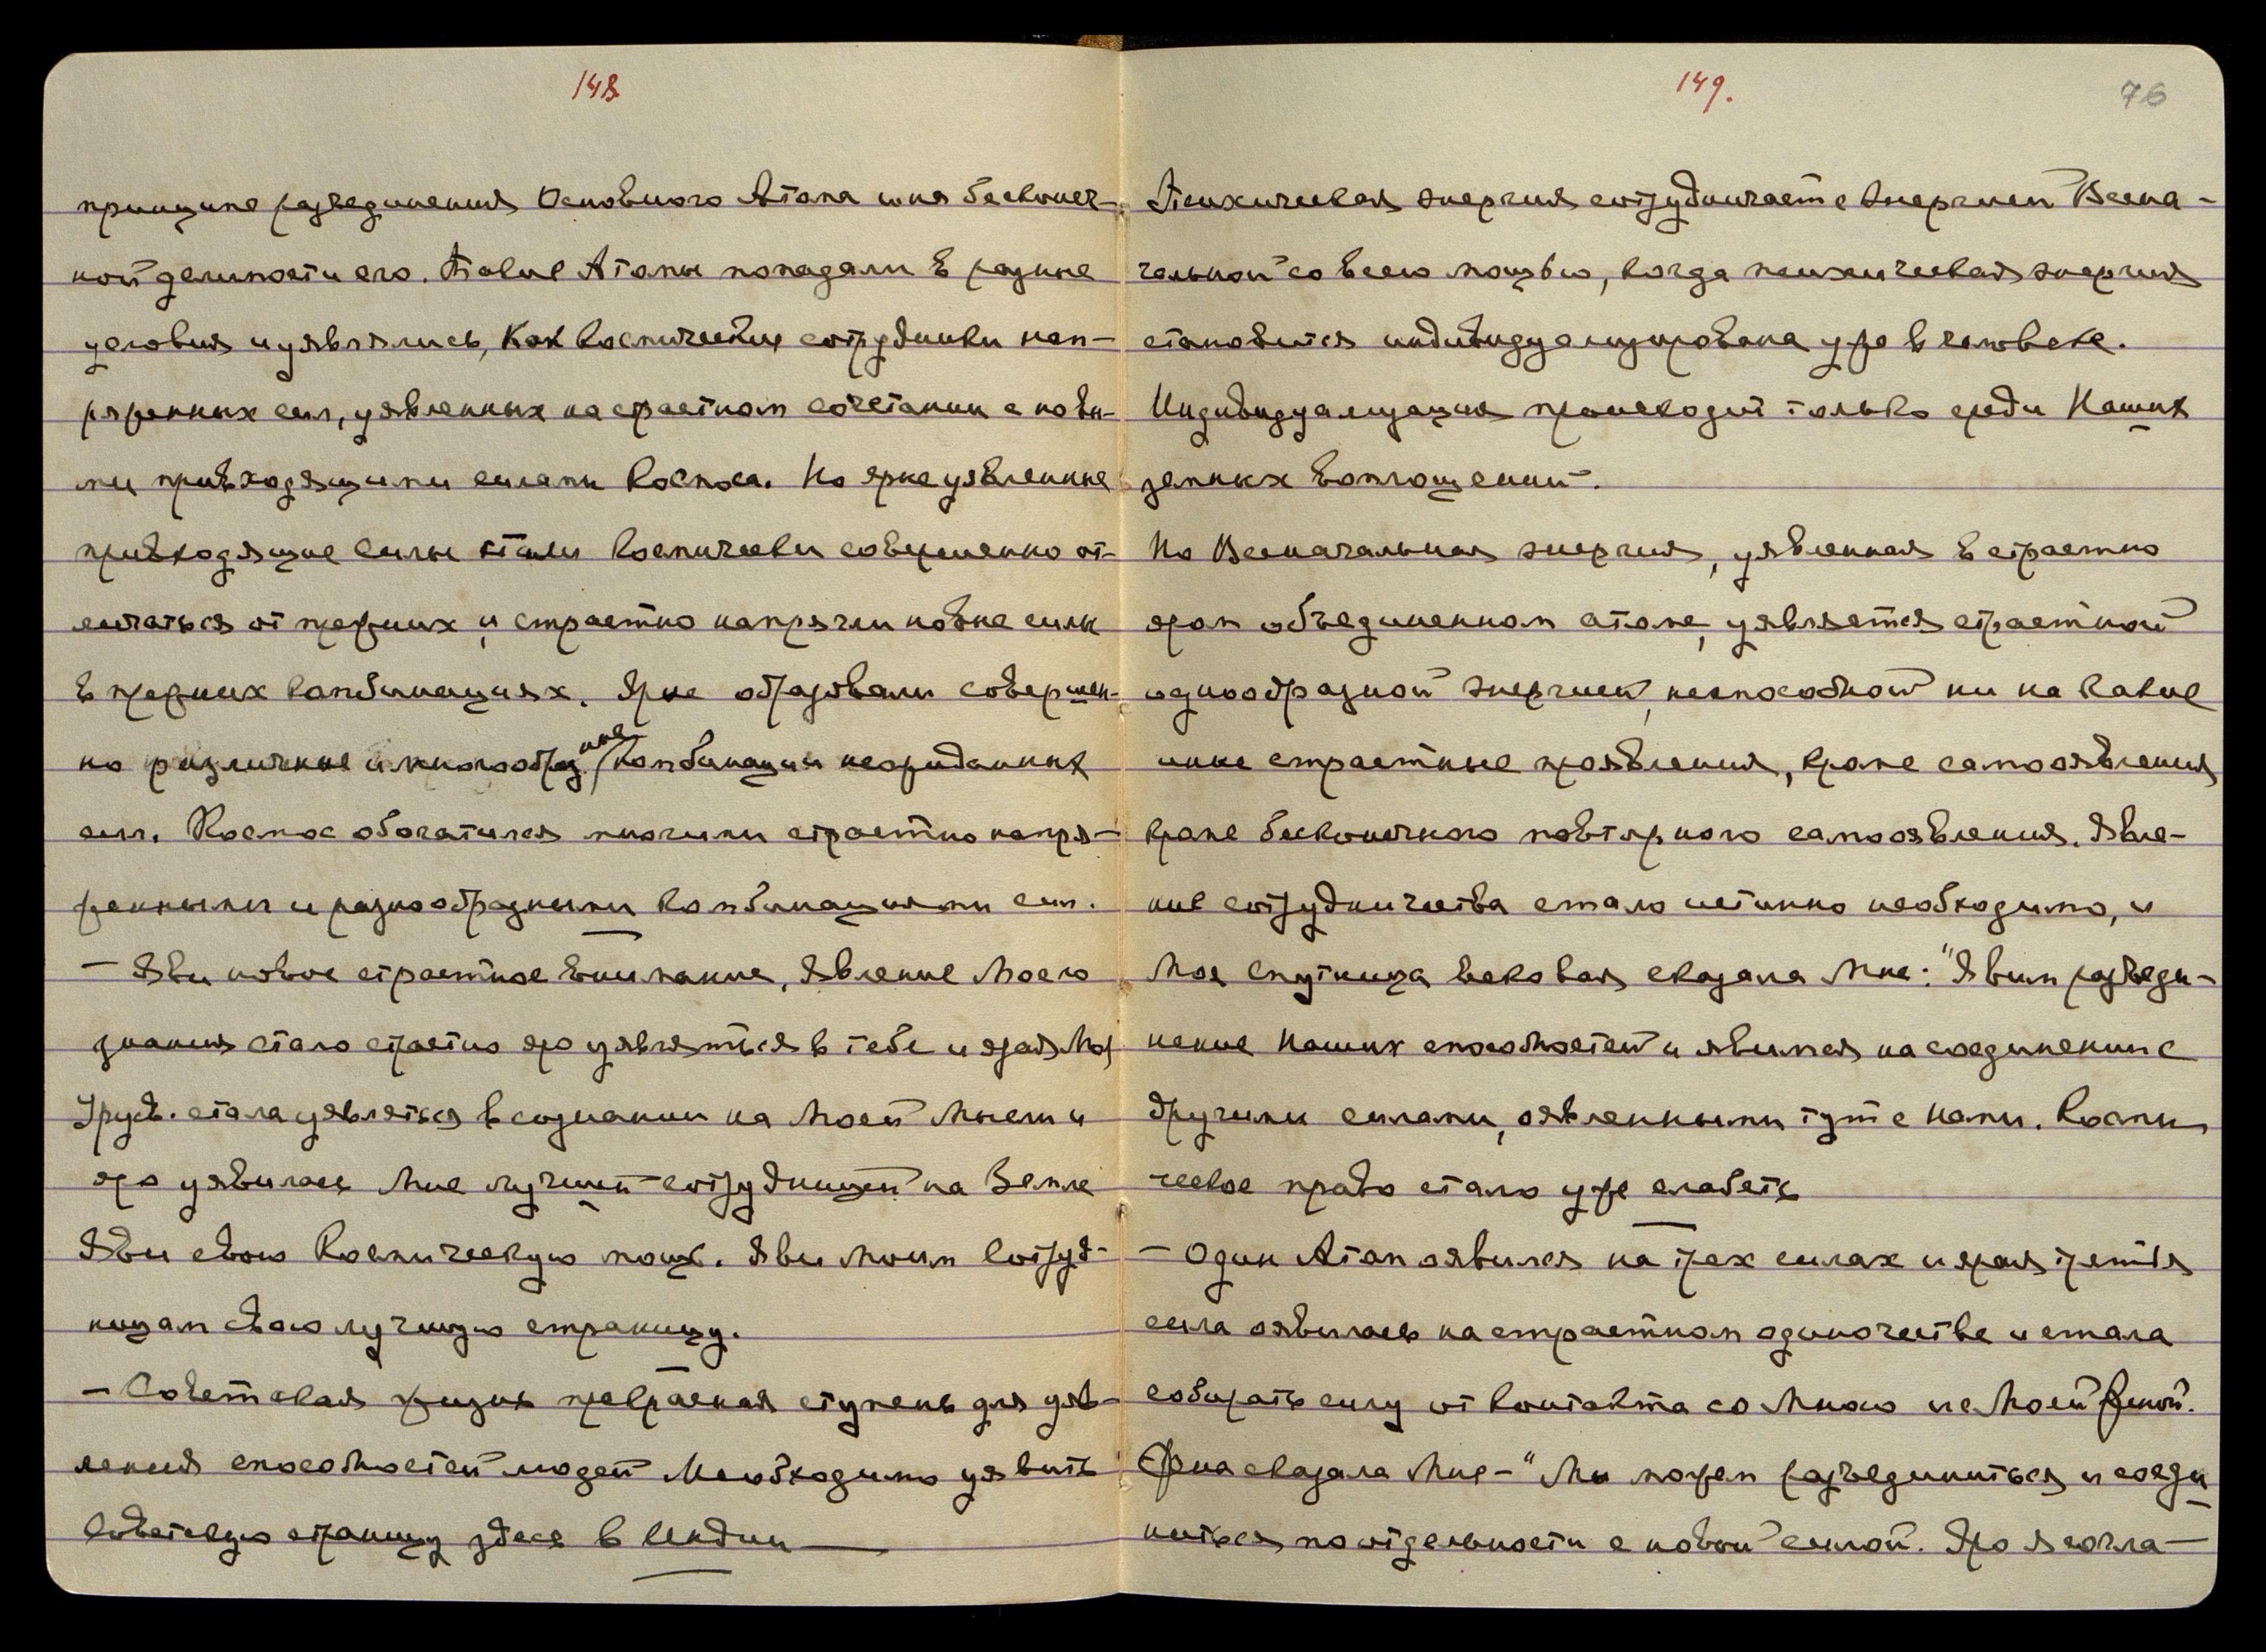 148
принципе разъединения Основного Атома и на бесконеч-
ной делимости его. Такие Атомы попадали в разные
условия и уявлялись, как космические сотрудники нап-
ряженных сил, уявленных на страстном сочетании с новы-
ми привходящими силами Космоса. Но ярые уявленные
привходящие силы стали космически совершенно от-
личаться от прежних и страстно напрягли новые силы
в прежних комбинациях. Ярые образовали совершен-
но различные и многообразные комбинации неожиданных
сил. Космос обогатился многими страстно напря-
женными и разнообразными комбинациями сил.
— Яви новое страстное внимание, Явление Моего
знания стало страстно яро уявляться в тебе и ярая Моя
Урусв. стала уявляться в сознании на Моей Мысли и
яро уявилась Мне лучшей сотрудницей на Земле
Яви свою Космическую мощь. Яви Моим сотруд-
ницам свою лучшую страницу.
— Советская жизнь прекрасная ступень для уяв-
ления способностей людей Необходимо уявить
советскую страницу здесь в Индии —
149. 76
Психическая энергия сотрудничает с энергией Всена-
чальной со всею мощью, когда психическая энергия
становится индивидуализирована уже в человеке.
Индивидуализация происходит только среди Наших
земных воплощений.
Но Всеначальная энергия, уявленная в страстно
яром объединенном атоме, уявляется страстной
однообразной энергией, неспособной ни на какие
иные страстные проявления, кроме самооявления
кроме бесконечного повторного самооявления. Явле-
ние сотрудничества стало истинно необходимо, и
Моя спутница вековая сказала Мне: "Явим разъеди-
нение Наших способностей и явимся на соединении с
другими силами, оявленными тут с Нами. Косми
ческое право стало уже слабеть
— Один Атом оявился на трех силах и ярая третья
сила оявилась на страстном одиночестве и стала
собирать силу от контакта со Мною и с Моей Женой.
Жена сказала Мне — "Мы можем разъединиться и соеди
ниться по отдельности с новой силой. Яро Я согла-